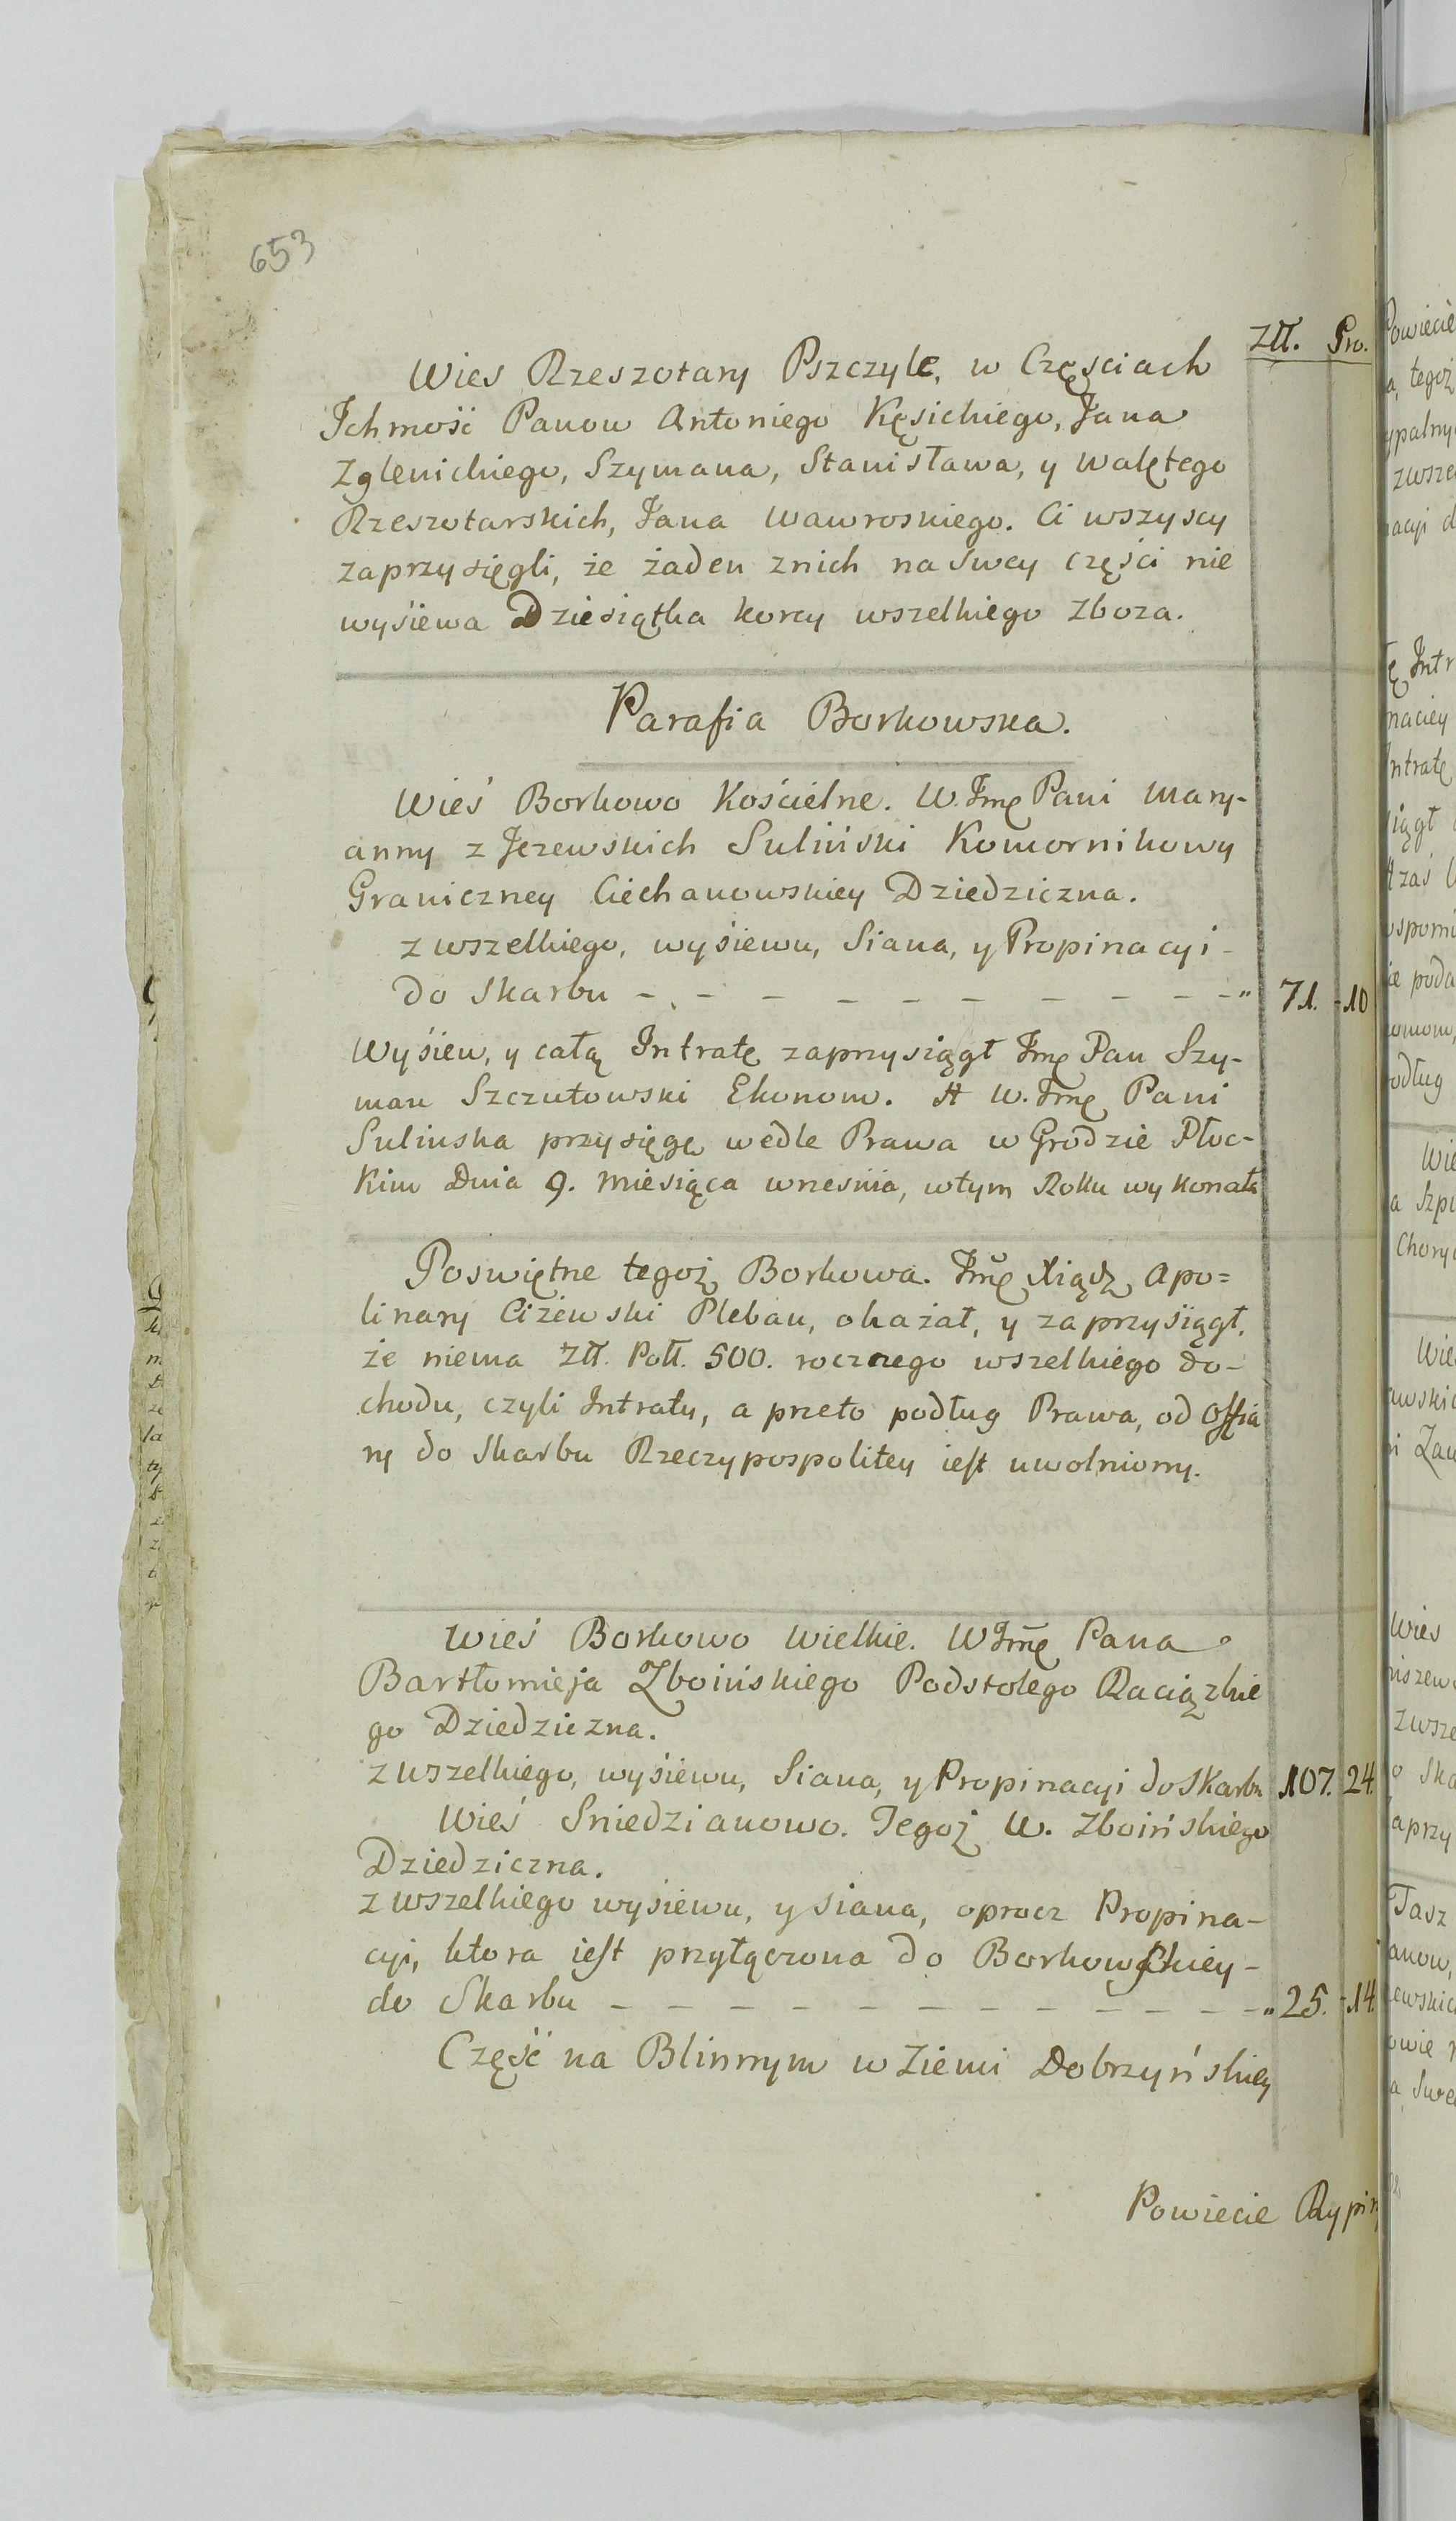 653
Złł. Gro.
Wies Rzeszotary Pszczyle, w Częsciach
Ichmość Panow Antoniego Kęsickiego, Jana
Zglenickiego, Szymana, Stanisława, y Walętego
Rzeszotarskich, Jana Wawroskiego. Ci wszyscy
zaprzysięgli, że żaden znich na Swey części nie
wysiewa Dziesiątka korcy wszelkiego Zboza.
Parafia Borkowska.
Wieś Borkowo Kościelne. W. Jmę Pani Mary-
anny z Jezewskich Suliński Komornikowy
Graniczney Ciechanowskiey Dziedziczna.
z wszelkiego, wyśiewu, Siana, y Propinacyi -
do Skarbu - - - - - - - - - - " 71. - 10
Wyśiew, y całą Intratę zaprzysiągł Jmę Pan Szy-
man Szczutowski Ekonom. A W. Jmę Pani
Sulinska przysięgę wedle Prawa w Grodzie Płoc-
kim Dnia 9. Miesiąca wrzesnia, wtym Roku wykonała
Poswiętne tegoż Borkowa. Jmę Xiądz Apo=
linary Ciżewski Pleban, okażał, y zaprzysiągł,
że niema Złł. Poll. 500. rocznego wszelkiego do-
chodu, czyli Intraty, a przeto podług Prawa, od Offia
ry do Skarbu Rzeczypospolitey iest uwolniony.
Wieś Borkowo Wielkie. WJmę Pana
Bartłomieja Zboińskiego Podstolego Raciązkie
go Dziedziczna.
z wszelkiego, wyśiewu, Siana, y Propinacyi do Skarbu 107. 24.
Wieś Sniedzianowo. Tegoż W. Zboińskiego
Dziedziczna.
z wszelkiego wyśiewu, y siana, oprocz Propina-
cyi, ktora iest przyłączona do Borkowskiey -
do Skarbu - - - - - - - - - - " 25. - 14.
Część na Blinnym w Ziemi Dobrzyńskiey
Powiecie Rypin